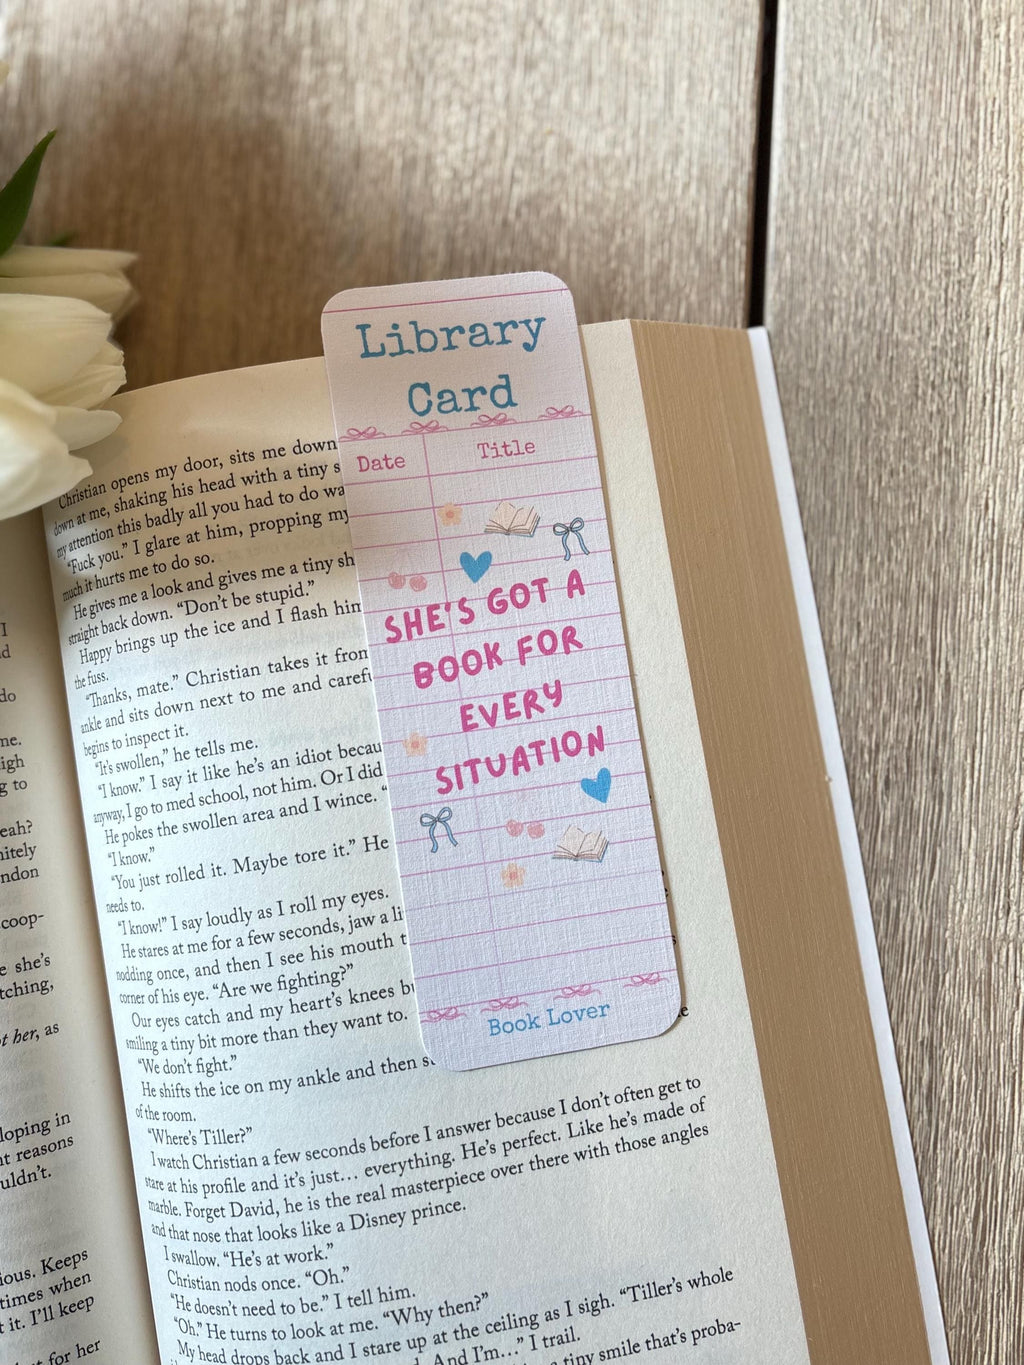 I
d
do
me.
igh
g to
eah?
nitely
ndon
coop-
e she's
tching,
t her, as
loping in
nt reasons
uldn't.
ious. Keeps
times when
t it. I'll keep
for her
Christian opens my door, sits me down
down at me, shaking his head with a tiny s
my attention this badly all you had to do wa
"Fuck you." I glare at him, propping my
much it hurts me to do so.
He gives me a look and gives me a tiny sh
straight back down. "Don't be stupid."
Happy brings up the ice and I flash him
the fuss.
"Thanks, mate." Christian takes it from
ankle and sits down next to me and carefu
begins to inspect it.
"It's swollen," he tells me.
"I know." I say it like he's an idiot becau
anyway, I go to med school, not him. Or I did
He pokes the swollen area and I wince. "
"I know."
"You just rolled it. Maybe tore it." He
needs to.
"I know!" I say loudly as I roll my eyes.
He stares at me for a few seconds, jaw a li
nodding once, and then I see his mouth t
corner of his eye. "Are we fighting?"
Our eyes catch and my heart's knees bu
smiling a tiny bit more than they want to.
"We don't fight."
He shifts the ice on my ankle and then s
of the room.
"Where's Tiller?"
I watch Christian a few seconds before I answer because I don't often get to
stare at his profile and it's just… everything. He's perfect. Like he's made of
marble. Forget David, he is the real masterpiece over there with those angles
and that nose that looks like a Disney prince.
I swallow. "He's at work."
Christian nods once. "Oh."
"He doesn't need to be." I tell him.
"Oh." He turns to look at me. "Why then?"
My head drops back and I stare up at the ceiling as I sigh. "Tiller's whole
And I'm…" I trail.
a tiny smile that's proba-
Library
Card
Date Title
SHE'S GOT A
BOOK FOR
EVERY
SITUATION
Book Lover